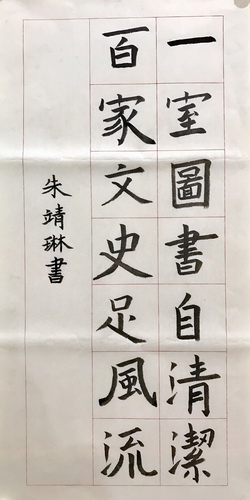 一室圖書自清潔
百家文史足風流
朱靖琳書